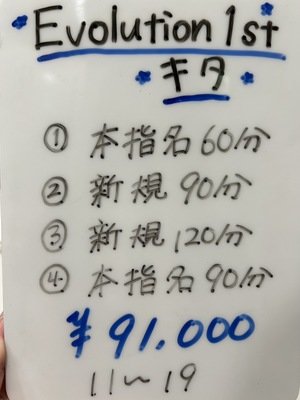 Evolution 1st
キタ
① 本指名 60分
② 新規 90分
③ 新規 120分
④ 本指名 90分
¥91.000
11〜19